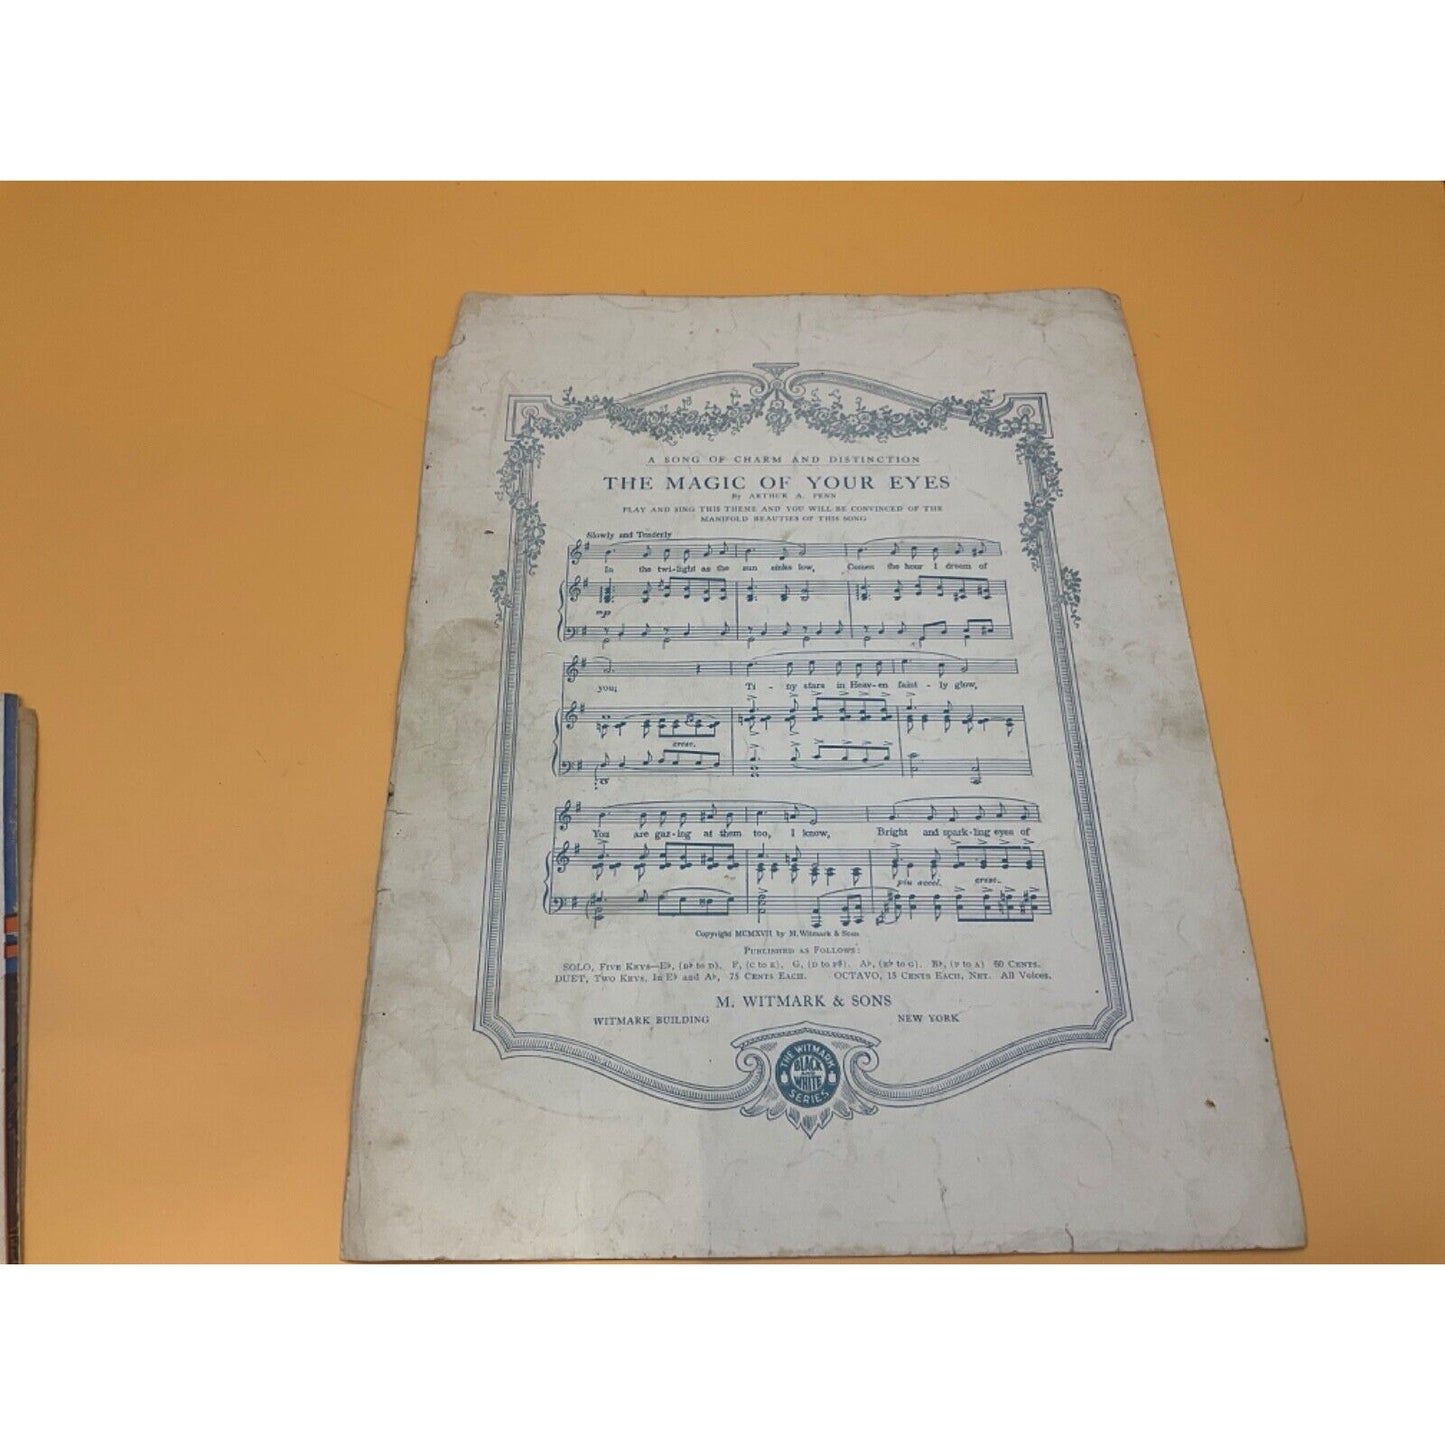 A SONG OF CHARM AND DISTINCTION
THE MAGIC OF YOUR EYES
By ARTHUR A. PENN
PLAY AND SING THIS THEME AND YOU WILL BE CONVINCED OF THE
MANIFOLD BEAUTIES OF THIS SONG
Slowly and Tenderly
In the twi-light as the sun sinks low, Comes the hour I dream of
mp
you; Ti - ny stars in Heav-en faint - ly glow,
cresc.
You are gaz-ing at them too, I know, Bright and spark-ling eyes of
piu accel. cresc.
Copyright MCMXVII by M. Witmark & Sons
PUBLISHED AS FOLLOWS:
SOLO, FIVE KEYS—E♭, (B♭ to D). F, (C to E), G, (D to F♯). A♭, (E♭ to G). B♭, (F to A) 60 CENTS.
DUET, TWO KEYS, In E♭ and A♭, 75 CENTS EACH. OCTAVO, 15 CENTS EACH, NET. All Voices.
M. WITMARK & SONS
WITMARK BUILDING NEW YORK
THE WITMARK
BLACK
AND
WHITE
SERIES